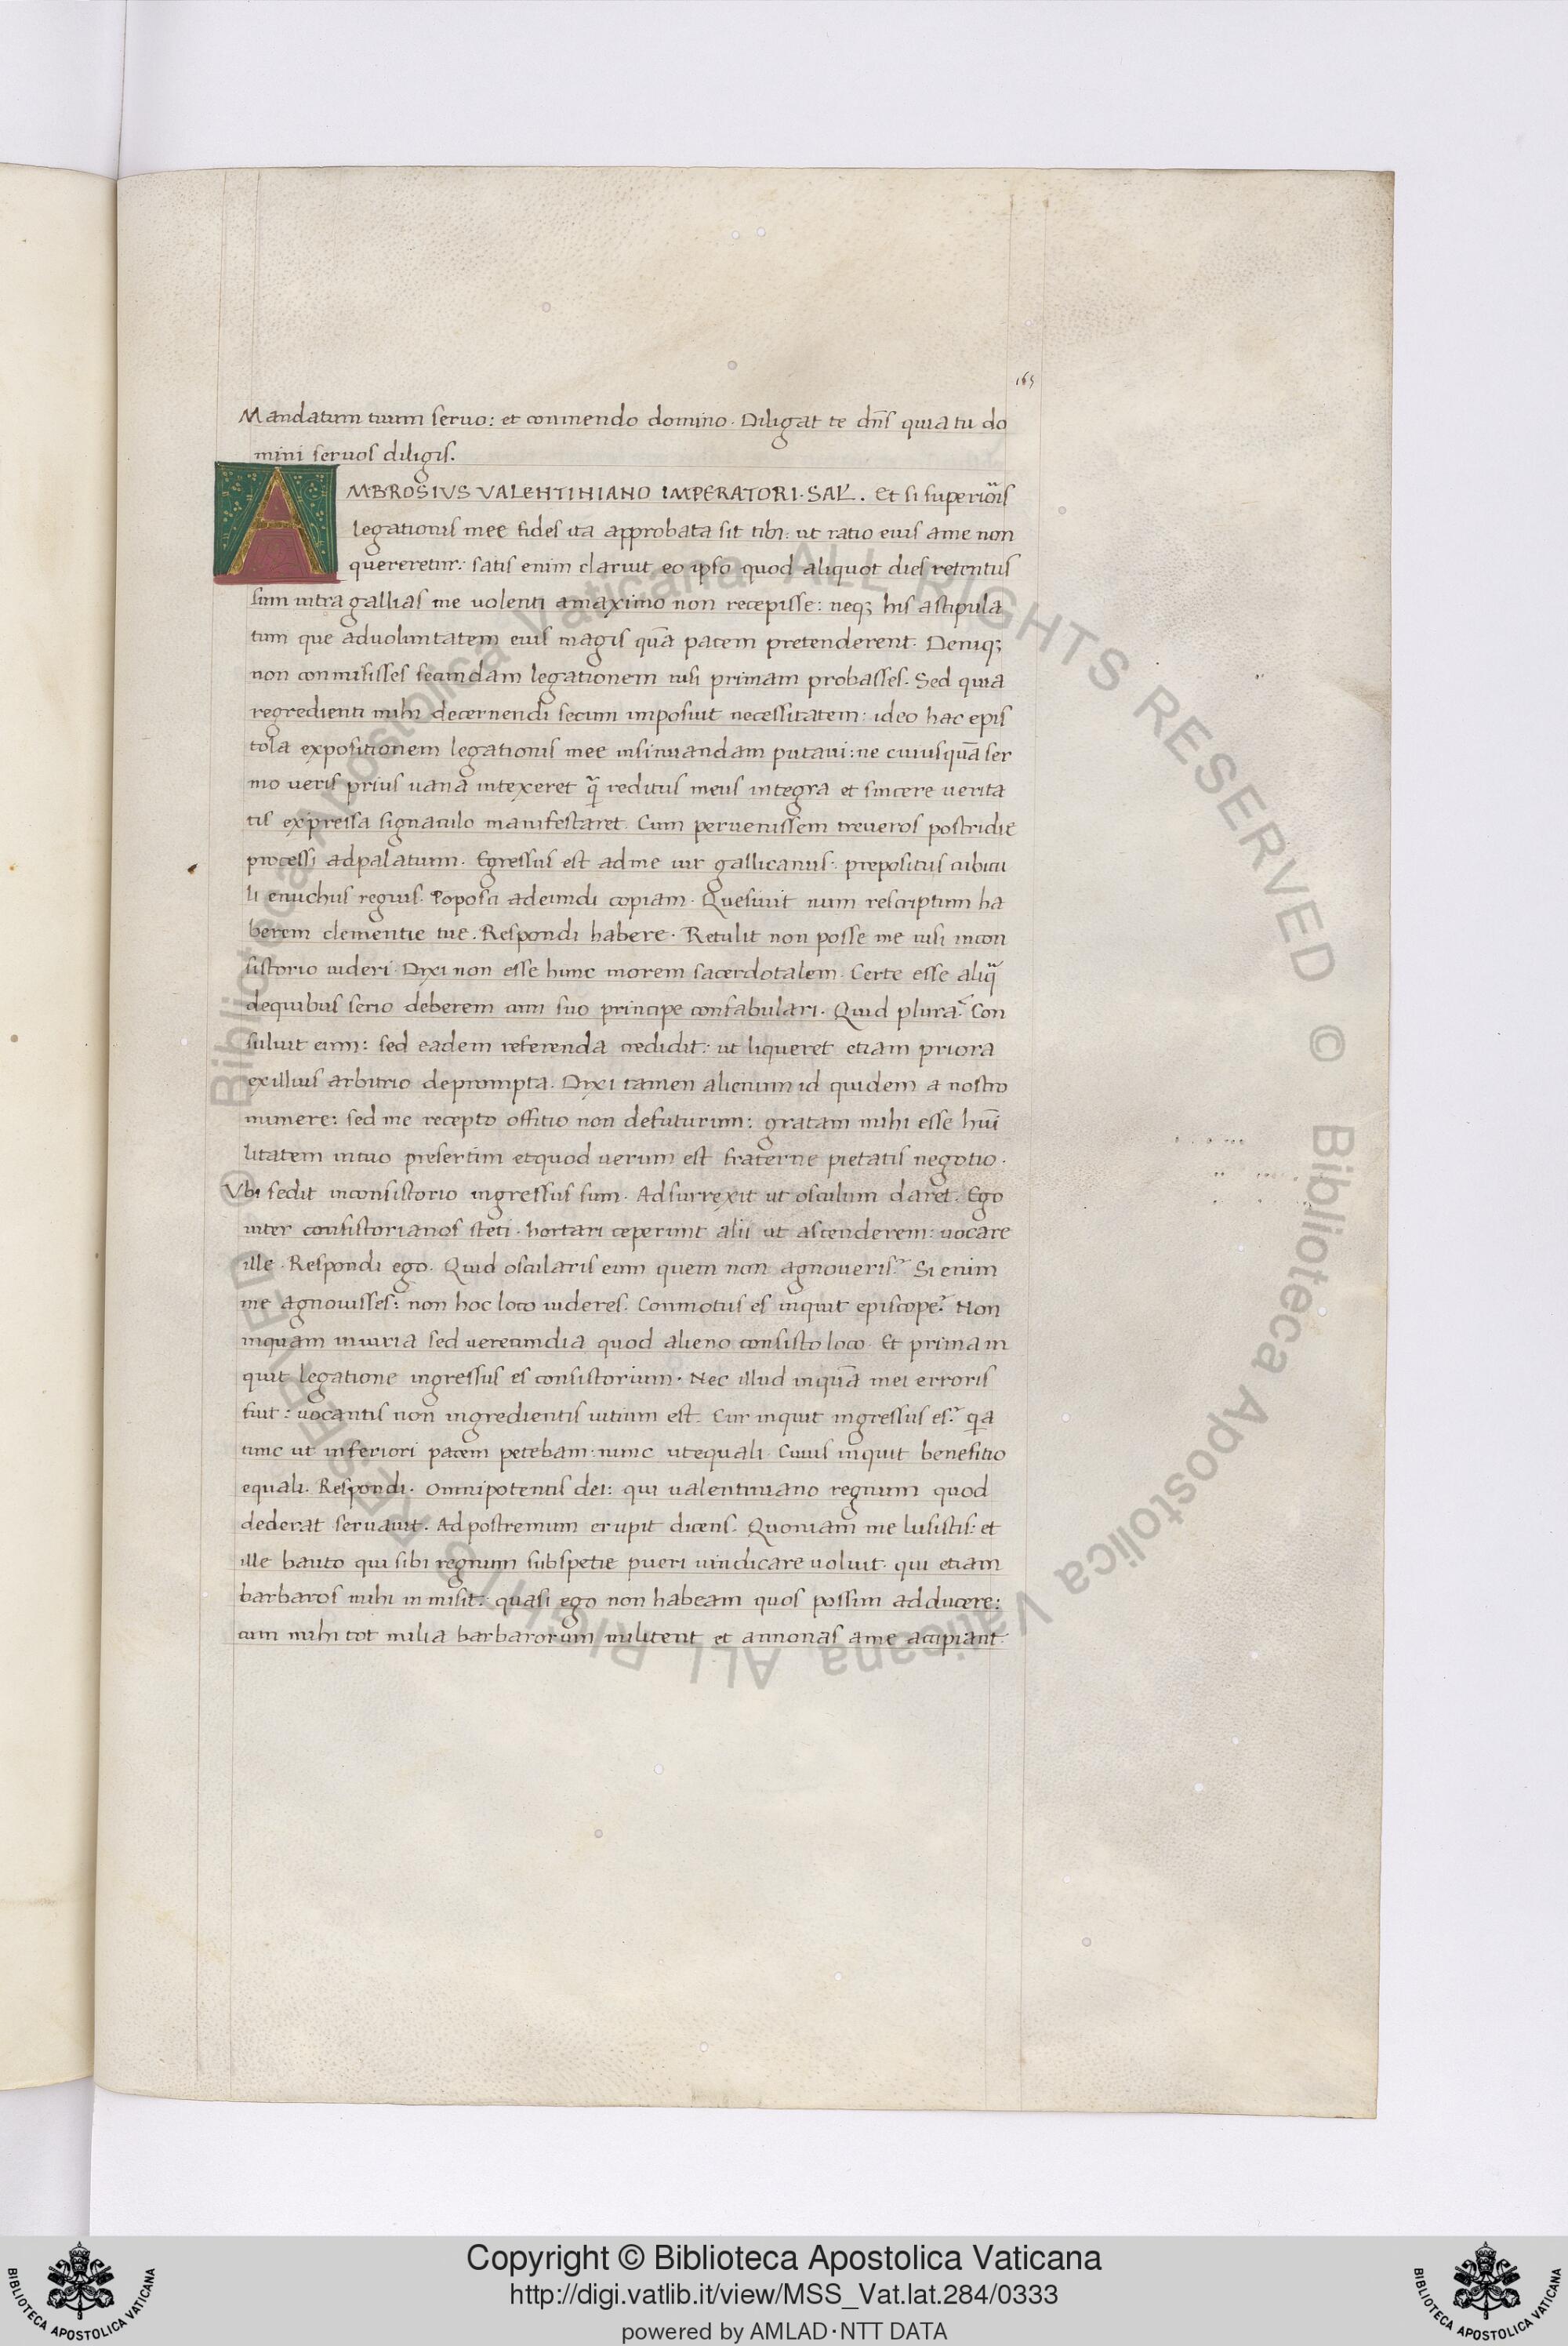 165
Mandatum tuum seruo: et conmendo domino. Diligat te dn̄s quia tu do
mini seruos diligis.
AMBROSIVS VALENTINIANO IMPERATORI. SAL̄. Et si superioris
legationis mee fides ita approbata sit tibi: ut ratio eius ame non
quereretur: satis enim claruit eo ipso quod aliquot dies retentus
sim intra gallias me uolenti amaximo non recepisse: neq; his astipula
tum que aduoluntatem eius magis quā pacem pretenderent. Deniq;
non conmisisses secundam legationem nisi primam probasses. Sed quia
regredienti mihi decernendi secum imposuit necessitatem: ideo hac epis
tola expositionem legationis mee insinuandam putaui: ne cuiusquā ser
mo ueris prius uana intexeret q̄ reditus meus integra et sincere uerita
tis expressa signaculo manifestaret. Cum peruenissem treueros postridie
processi adpalatium. Egressus est adme uir gallicanus: prepositus cubicu
li enuchus regius. Poposci adeundi copiam. Quesiuit num rescriptum ha
berem clementie tue. Respondi habere. Retulit non posse me nisi incon
sistorio uideri. Dixi non esse hunc morem sacerdotalem. Certe esse aliq̄
dequibus serio deberem cum suo principe confabulari. Quid plura? Con
suluit eum: sed eadem referenda credidit: ut liqueret etiam priora
exillius arbitrio deprompta. Dixi tamen alienum id quidem a nostro
munere: sed me recepto offitio non defuturum: gratam mihi esse hūi
litatem intuo presertim etquod uerum est fraterne pietatis negotio.
Vbi sedit inconsistorio ingressus sum. Adsurrexit ut osculum daret. Ego
inter consistorianos steti. hortari ceperunt alii ut ascenderem: uocare
ille. Respondi ego. Quid oscularis eum quem non agnoueris? Si enim
me agnouisses: non hoc loco uideres. Conmotus es inquit episcope? Non
inquam iniuria sed uerecundia quod alieno consisto loco. Et prima in
quit legatione ingressus es consistorium. Nec illud inquā mei erroris
fuit: uocantis non ingredientis uitium est. Cur inquit ingressus es? q̄a
tunc ut inferiori pacem petebam: nunc utequali. Cuius inquit benefitio
equali. Respondi. Omnipotentis dei: qui ualentiniano regnum quod
dederat seruauit. Ad postremum erupit dicens. Quoniam me lusistis: et
ille bauto qui sibi regnum subspetie pueri uindicare uoluit. qui etiam
barbaros mihi inmisit: quasi ego non habeam quos possim adducere:
cum mihi tot milia barbarorum militent et annonas ame accipiant.
© Biblioteca Apostolica Vaticana ALL RIGHTS RESERVED © Biblioteca Apostolica Vaticana ALL RIGHTS RESERVED
BIBLIOTECA APOSTOLICA VATICANA
Copyright © Biblioteca Apostolica Vaticana
http://digi.vatlib.it/view/MSS_Vat.lat.284/0333
powered by AMLAD·NTT DATA
BIBLIOTECA APOSTOLICA VATICANA